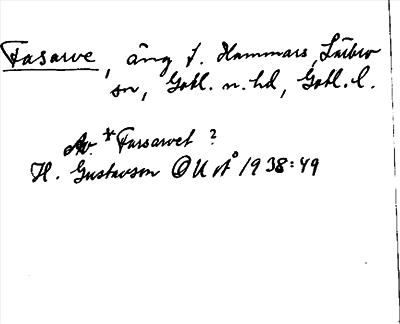 Fasarve, äng f. Hammars, Lärbro
sn, Gotl. n. hd, Gotl. l.
Av. *Farsarvet ?
H. Gustavson OUÅ 1938:49